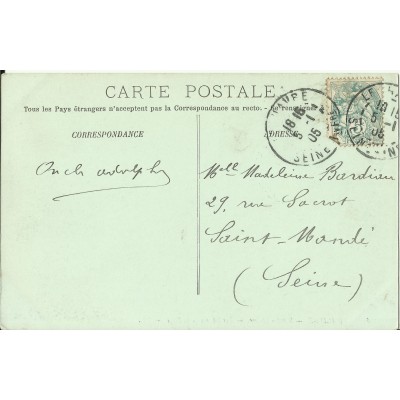 CARTE POSTALE
Tous les Pays étrangers n'acceptent pas la Correspondance au recto. - Se renseigner à
CORRESPONDANCE
ADRESSE
HAVRE
18 15
5-1
05
SEINE
LE
18 15
5-1
05
Oncle adolphe
Melle Madeleine Bardieu
29, rue Sacrot
Saint-Mandé
(Seine)